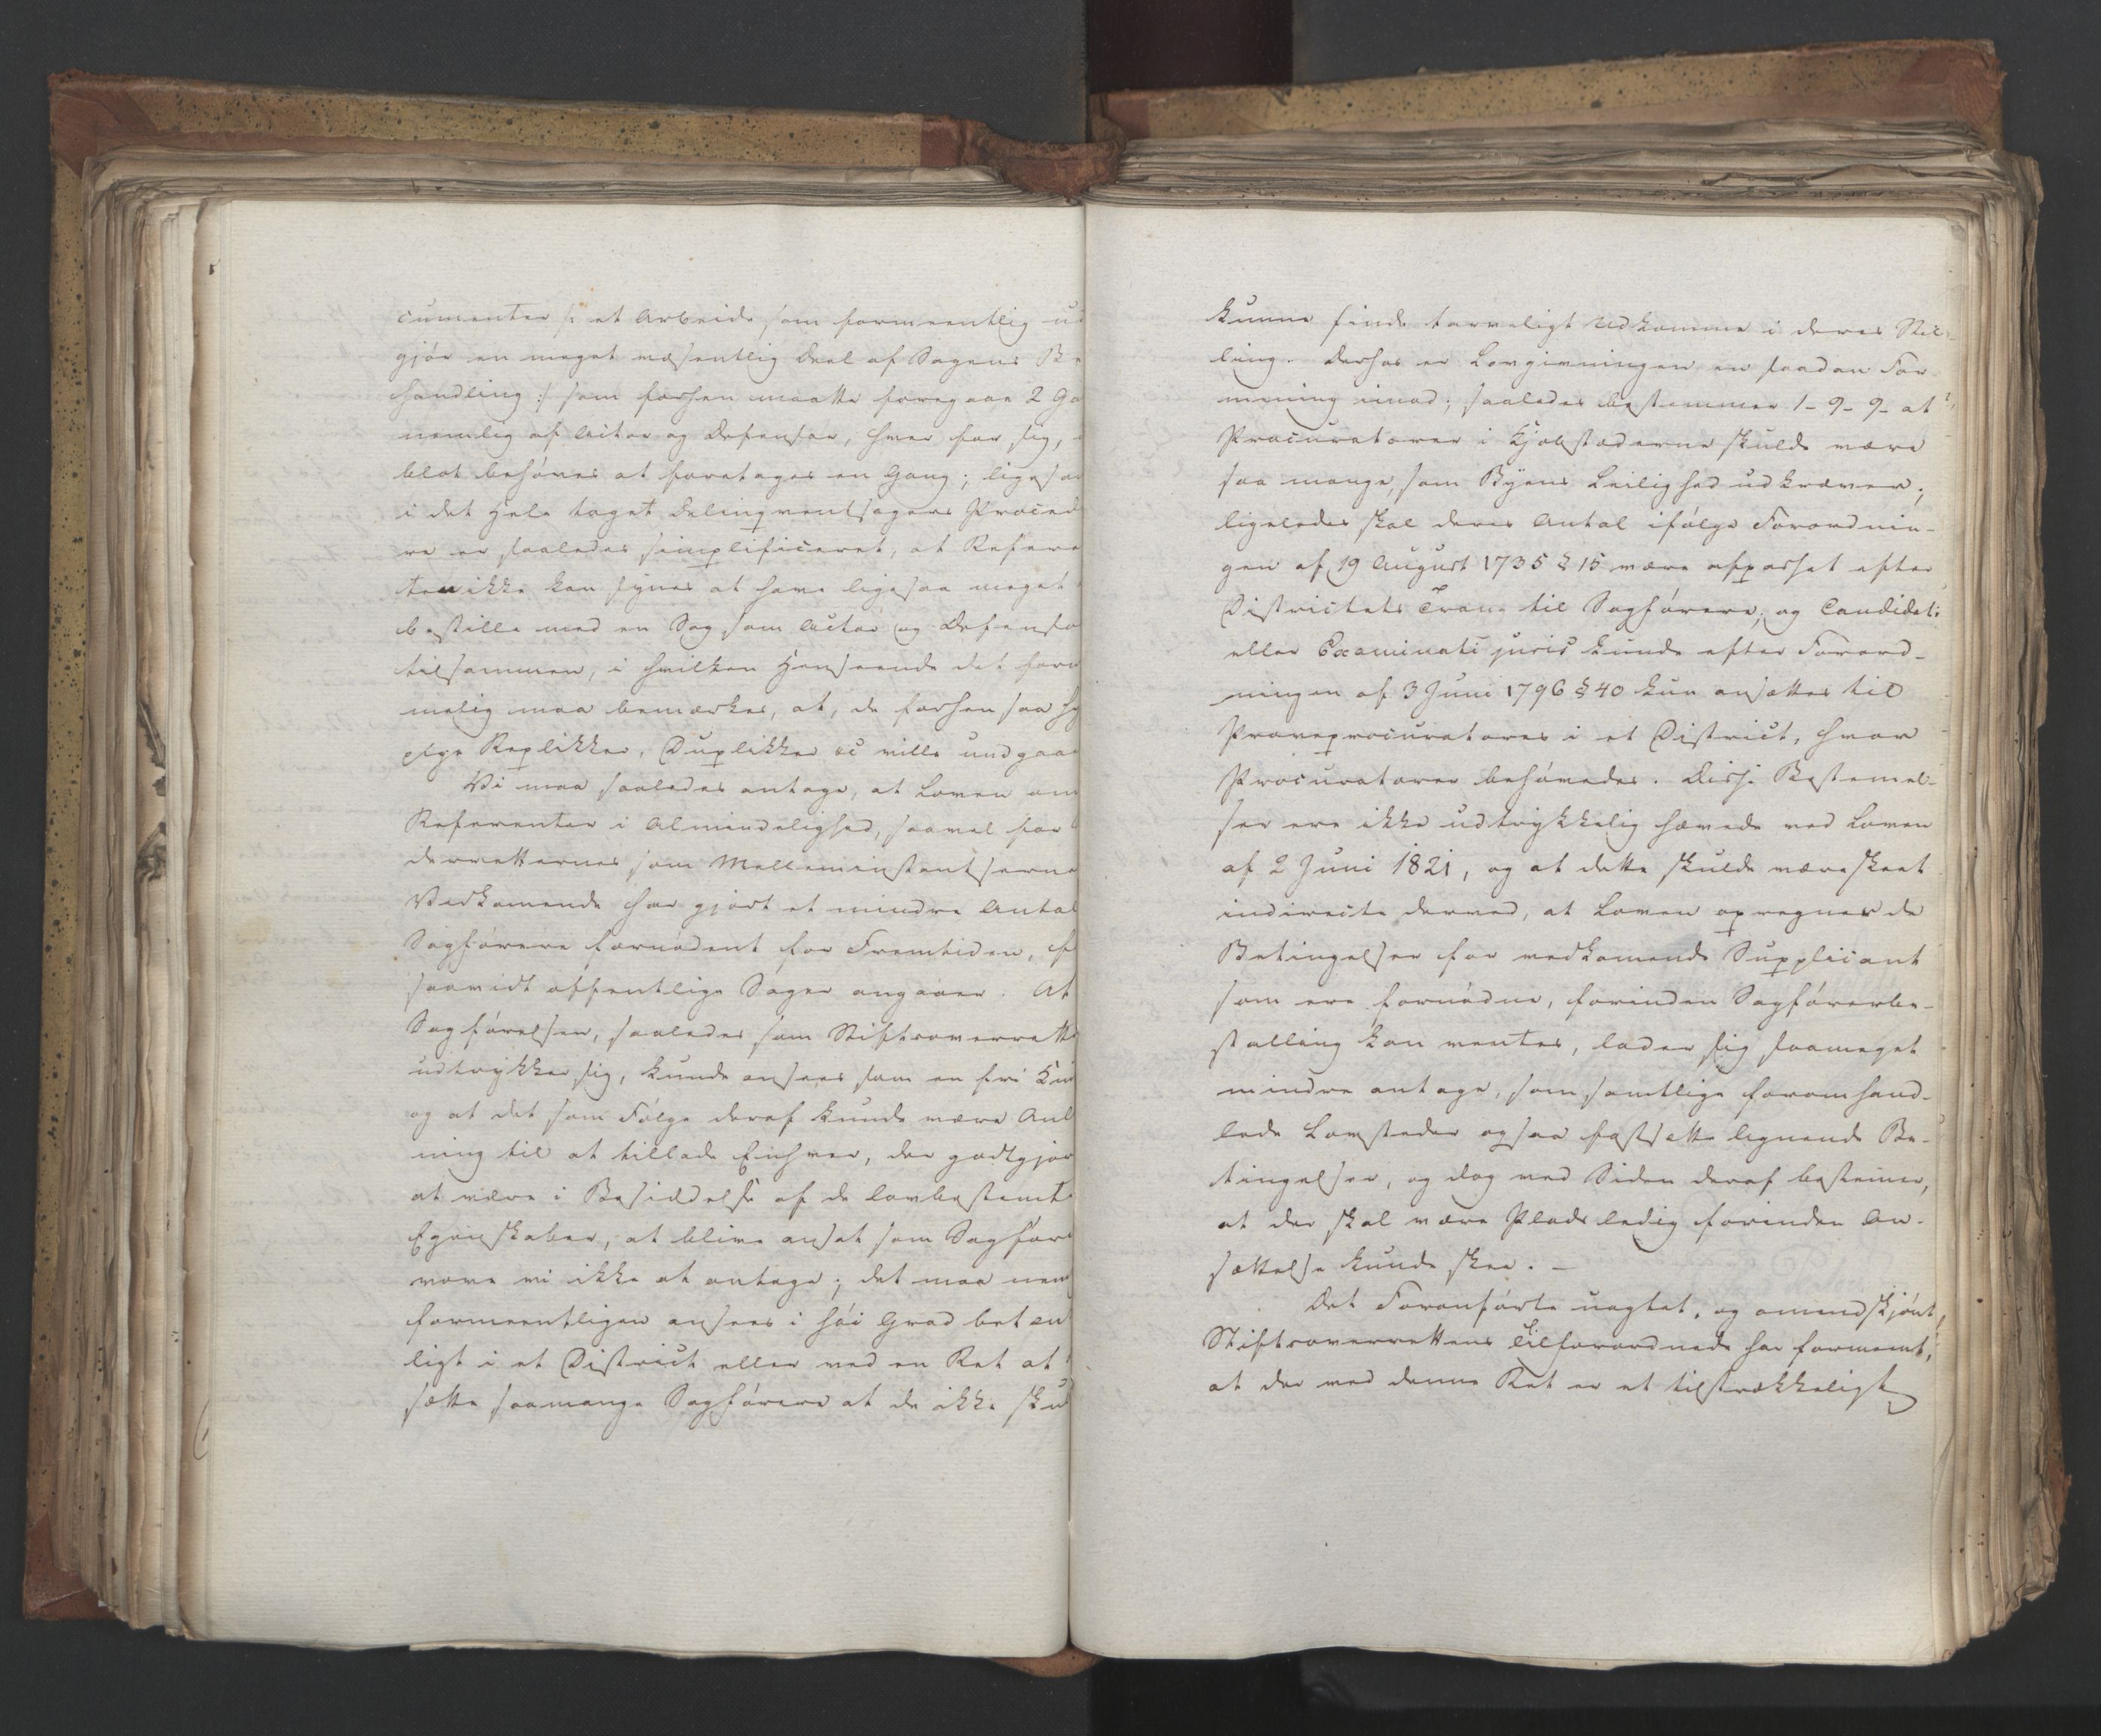 cumenter /: et Arbeide som formeentlig ud
gjør en meget væsentlig Deel af Sagens Be
handling :/ som forhen maatte foregaae 2 Ga
nemlig af Actor og Defensor, hver for sig,
blot behøves at foretages en Gang; ligesom
i det Hele taget Delinqventsagers Proced
re er saaledes simplificeret, at Refere
ten ikke kan synes at have ligesaa meget
bestille med en Sag som Actor og Defenso
tilsammen, i hvilken Henseende det forn
melig maa bemærkes, at, de forhen saa hy
pige Replikker, Duplikker &c ville undgaae
Vi maa saaledes antage, at Loven om
Referenter i Almindelighed, saavel for
derretternes som Melleminstantserne
Vedkomende har gjort et mindre Antal
Sagførere fornødent for Fremtiden, f
saavidt offentlige Sager angaaer. At
Sagførelsen, saaledes som Stiftsoverrett
udtrykker sig, kunde ansees som en fri Kun
og at det som Følge deraf kunde være Anl
ning til at tillade Enhver, der godtgjør
at være i Besiddelse af de lovbestemte
Egenskaber, at blive ansat som Sagfør
vove vi ikke at antage; det maa neml
formeentligen ansees i høi Grad betæn
ligt i et District eller ved en Ret at
sætte saamange Sagførere at de ikke skul
kunne finde tarveligt Udkomme i deres Stil
ling. Derhos er Lovgivningen en saadan For
mening imod; saaledes bestemmer 1-9-9- at
Procuratorer i Kjøbstæderne skulde være
saa mange, som Byens Leilighed udkræver;
ligeledes skal deres Antal ifølge Forordnin-
gen af 19 August 1735 § 15 være afpasset efter
Districtets Trang til Sagførere; og Candidati
eller Examinati juris kunde efter Forord-
ningen af 3 Juni 1796 § 40 kun ansættes til
Prøveprocuratorer i et District, hvor
Procuratorer behøvedes. Disse Bestemel-
ser ere ikke udtrykkelig hævede ved Loven
af 2 Juni 1821, og at dette skulde være skeet
indirecte derved, at Loven opregner de
Betingelser for vedkomende Supplicant
som ere fornødne, forinden Sagførerbe-
stalling kan ventes, lader sig saameget
mindre antage, som samtlige foromhand-
lede Lovsteder ogsaa fastsætte lignende Be-
tingelser, og dog ved Siden deraf bestemer,
at der skal være Plads ledig forinden An-
sættelse kunde skee. -
Det Foranførte uagtet, og omendskjønt
Stiftsoverrettens Tilforordnede har formeent,
at der ved denne Ret er et tilstrækkeligt